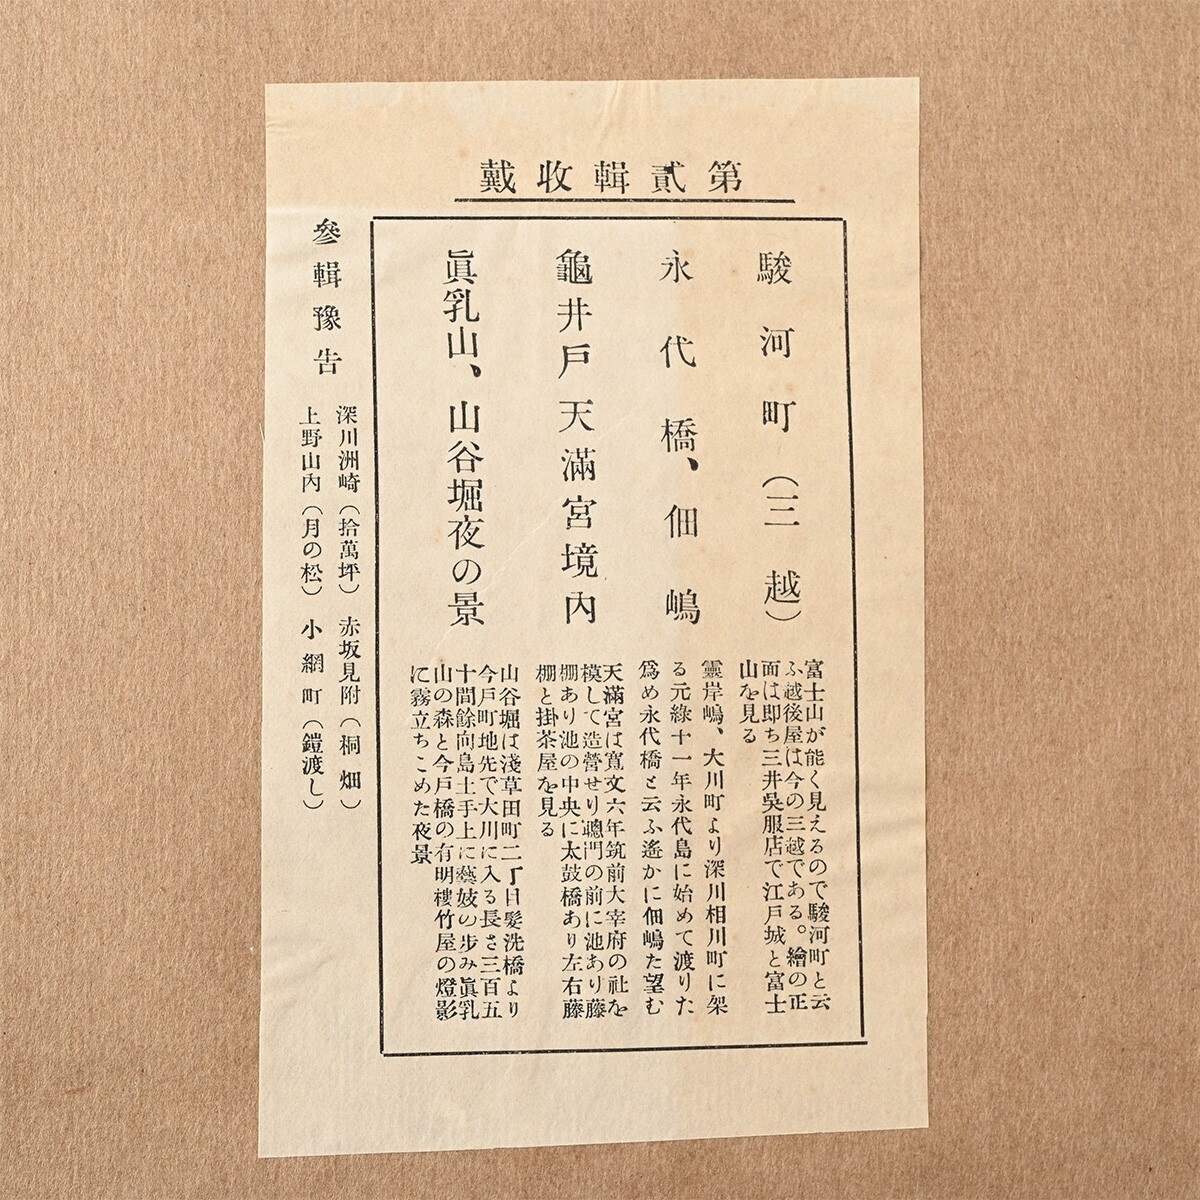 第貳輯收戴
駿河町（三越）
富士山が能く見えるので駿河町と云
ふ越後屋は今の三越である。繪の正
面は即ち三井吳服店で江戸城と富士
山を見る
永代橋、佃嶋
靈岸嶋、大川町より深川相川町に架
る元綠十一年永代島に始めて渡りた
爲め永代橋と云ふ遙かに佃嶋た望む
龜井戸天滿宮境內
天滿宮は寬文六年筑前大宰府の社を
模して造營せり聰門の前に池あり藤
棚あり池の中央に太鼓橋あり左右藤
棚と掛茶屋を見る
眞乳山、山谷堀夜の景
山谷堀は淺草田町二丁目髮洗橋より
今戸町地先で大川に入る長さ三百五
十間餘向島土手上に藝妓の步み眞乳
山の森と今戸橋の有明樓竹屋の燈影
に霧立ちこめた夜景
參輯豫告
深川洲崎（拾萬坪）赤坂見附（桐畑）
上野山內（月の松）小網町（鎧渡し）